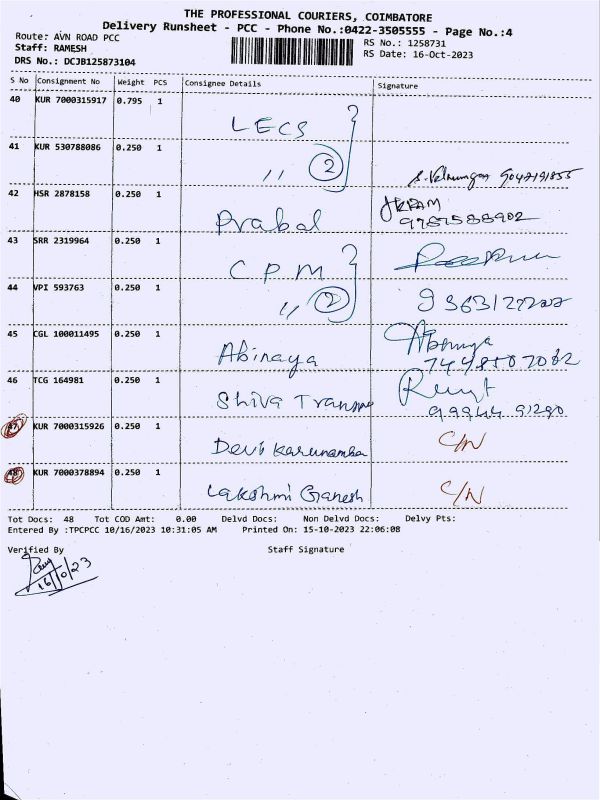 THE PROFESSIONAL COURIERS, COIMBATORE
Delivery Runsheet - PCC - Phone No.:0422-3505555 - Page No.:4
Route: AVN ROAD PCC
RS No.: 1258731
Staff: RAMESH
RS Date: 16-Oct-2023
DRS No.: DCJB125873104
S No Consignment No Weight PCS Consignee Details Signature
40 KUR 7000315917 0.795 1 LECS
41 KUR 530788086 0.250 1 ,, 2 9042191855
42 HSR 2878158 0.250 1 Prabal
43 SRR 2319964 0.250 1 CPM
44 VPI 593763 0.250 1 ,, 2
45 CGL 100011495 0.250 1 Abinaya
46 TCG 164981 0.250 1 Shiva 99944 91290
47 KUR 7000315926 0.250 1 Devi Karunamba C/N
48 KUR 7000378894 0.250 1 Lakshmi Ganesh C/N
Tot Docs: 48 Tot COD Amt: 0.00 Delvd Docs: Non Delvd Docs: Delvy Pts:
Entered By :TPCPCC 10/16/2023 10:31:05 AM Printed On: 15-10-2023 22:06:08
Verified By Staff Signature
16/0/23